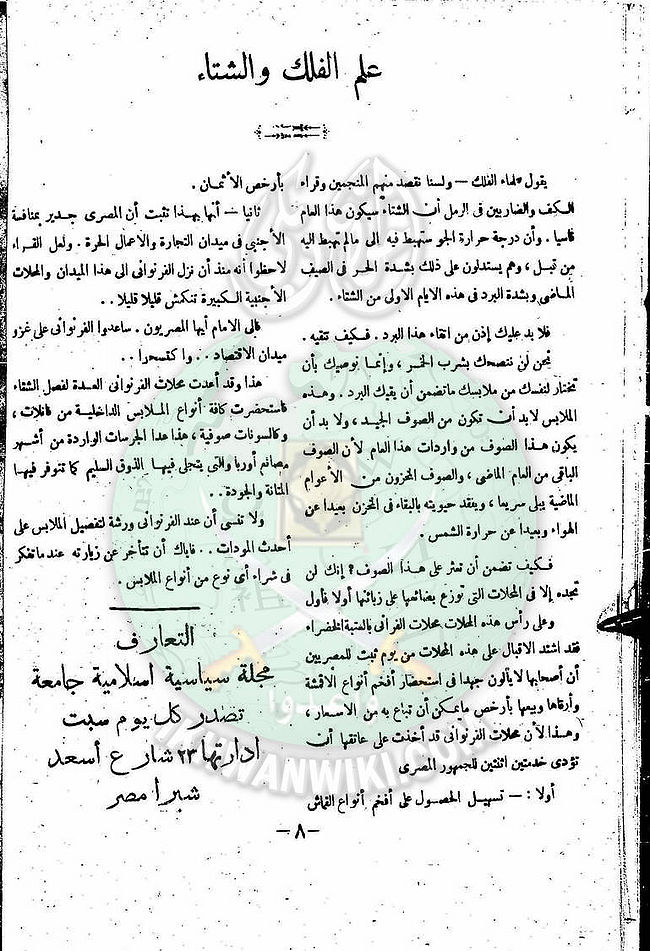 علم الفلك والشتاء
يقول علماء الفلك — ولسنا نقصد منهم المنجمين وقراء
الكف والضاربين فى الرمل أن الشتاء سيكون هذا العام
قاسيا . وأن درجة حرارة الجو ستهبط فيه الى مالم تهبط اليه
من قبل ، وهم يستدلون على ذلك بشدة الحر فى الصيف
الماضى وبشدة البرد فى هذه الايام الاولى من الشتاء .
فلا بد عليك إذن من اتقاء هذا البرد . فكيف تتقيه .
نحن لن ننصحك بشرب الخمر ، وإنما نوصيك بأن
تختار لنفسك من ملابسك ماتضمن أن يقيك البرد . وهذه
الملابس لابد أن تكون من الصوف الجيد ، ولا بد أن
يكون هذا الصوف من واردات هذا العام لأن الصوف
الباقى من العام الماضى ، والصوف المخزون من الأعوام
الماضية يبلى سريعا ، ويفقد حيويته بالبقاء فى المخزن بعيدا عن
الهواء وبعيدا عن حرارة الشمس .
فكيف تضمن أن تعثر على هذا الصوف ؟ إنك لن
تجده إلا فى المحلات التى توزع بضائعها على زبائنها أولا بأول
وعلى رأس هذه المحلات محلات الفرنوانى بالعتبة الخضراء
فقد اشتد الاقبال على هذه المحلات من يوم ثبت للمصريين
أن أصحابها لايألون جهدا فى استحضار أفخم أنواع الاقمشة
وأرقاها وبيعها بأرخص مايمكن أن تباع به من الاسعار ،
وهذا لأن محلات الفرنوانى قد أخذت على عاتقها أن
تؤدى خدمتين اثنتين للجمهور المصرى
أولا : — تسهيل الحصول على أفخم أنواع القماش
بأرخص الأثمان .
ثانيا — أنها بهذا تثبت أن المصرى جدير بمنافسة
الأجنبى فى ميدان التجارة والاعمال الحرة . ولعل القراء
لاحظوا أنه منذ أن نزل الفرنوانى الى هذا الميدان والمحلات
الأجنبية الكبيرة تنكمش قليلا قليلا . .
فالى الامام أيها المصريون . ساعدوا الفرنوانى على غزو
ميدان الاقتصاد . . وا كتسحوا . .
هذا وقد أعدت محلات الفرنوانى العدة لفصل الشتاء
فاستحضرت كافة أنواع الملابس الداخلية من فانلات ،
وكالسونات صوفية ، هذا عدا الجرسات الواردة من أشهر
مصانع أوربا والتى يتجلى فيها الذوق السليم كما تتوفر فيها
المتانة والجودة . .
ولا ننسى أن عند الفرنوانى ورشة لتفصيل الملابس على
أحدث المودات . . فاياك أن تتأخر عن زيارته عند ماتفكر
فى شراء أى نوع من أنواع الملابس .
التعارف
مجلة سياسية اسلامية جامعة
تصدر كل يوم سبت
ادارتها ٢٣ شارع أسعد
شبرا مصر
—٨—